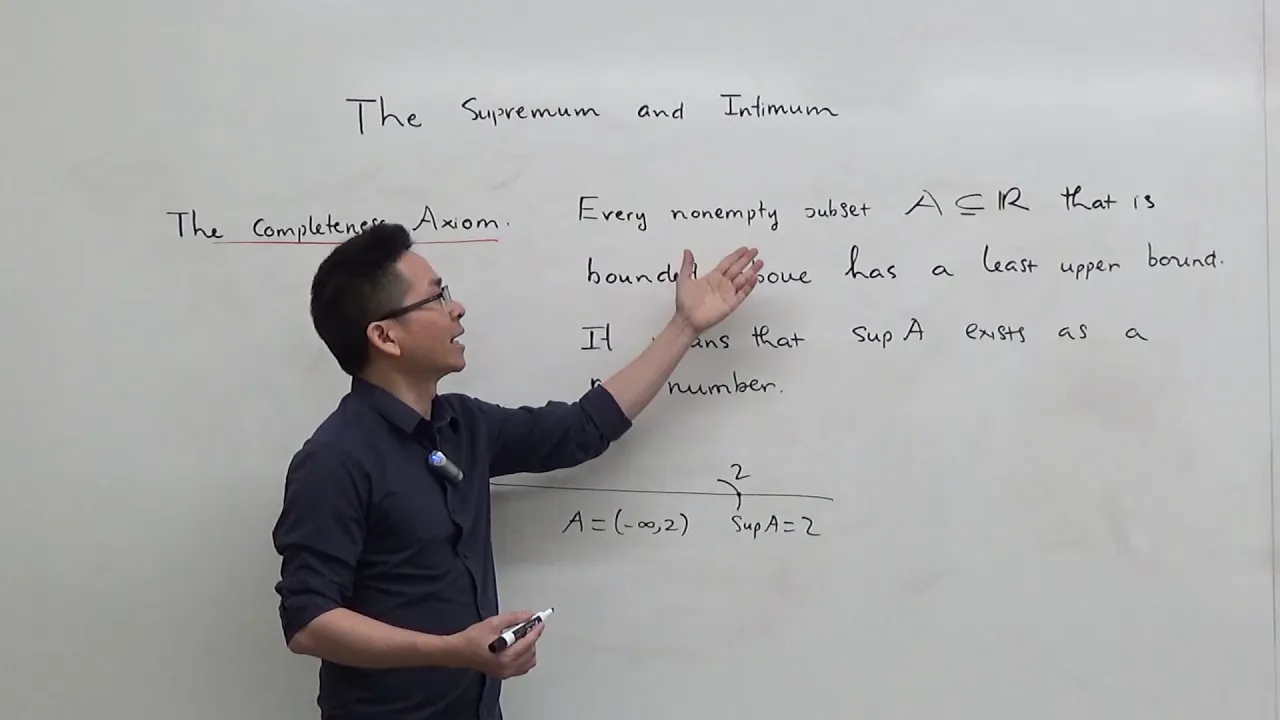 The Supremum and Intimum
The Completeness Axiom.
Every nonempty subset A ⊆ ℝ that is
bounded above has a least upper bound.
It that sup A exists as a
number.
2
A = (-∞, 2)
Sup A = 2